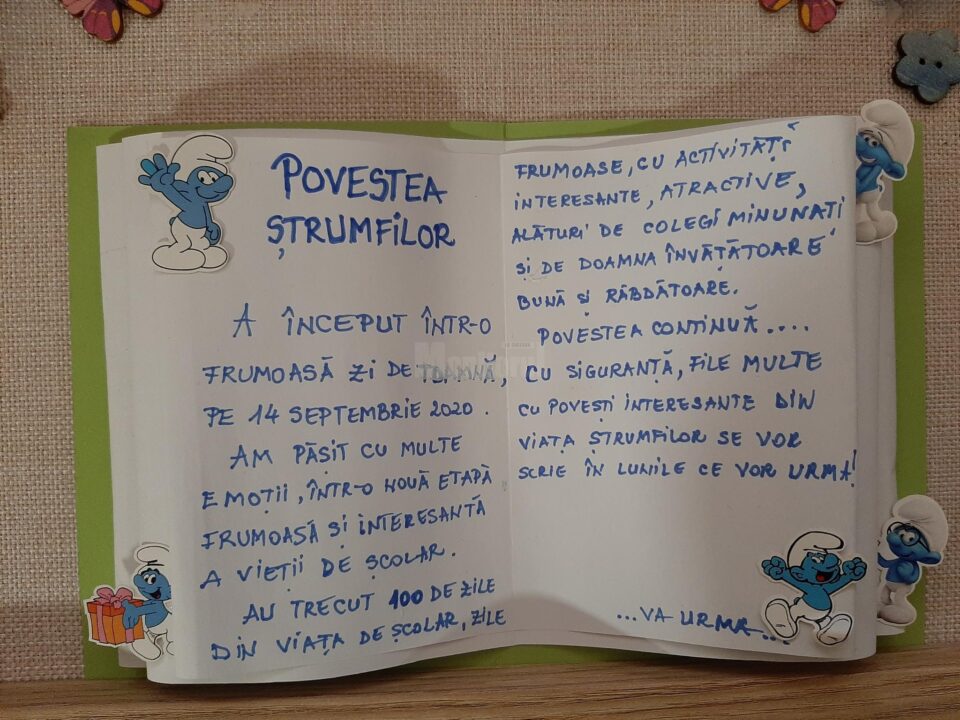 POVESTEA
ȘTRUMFILOR
A ÎNCEPUT ÎNTR-O
FRUMOASĂ ZI DE TOAMNĂ,
PE 14 SEPTEMBRIE 2020.
AM PĂȘIT CU MULTE
EMOȚII, ÎNTR-O NOUĂ ETAPĂ
FRUMOASĂ ȘI INTERESANTĂ
A VIEȚII DE ȘCOLAR.
AU TRECUT 100 DE ZILE
DIN VIAȚA DE ȘCOLAR, ZILE
FRUMOASE, CU ACTIVITĂȚI
INTERESANTE, ATRACTIVE,
ALĂTURI DE COLEGI MINUNAȚI
ȘI DE DOAMNA ÎNVĂȚĂTOARE
BUNĂ ȘI RĂBDĂTOARE.
POVESTEA CONTINUĂ....
CU SIGURANȚĂ, FILE MULTE
CU POVEȘTI INTERESANTE DIN
VIAȚA ȘTRUMFILOR SE VOR
SCRIE ÎN LUNILE CE VOR URMA!
...VA URMA...